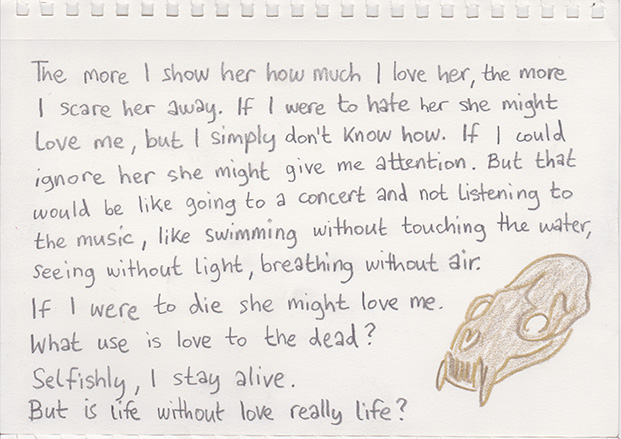 The more I show her how much I love her, the more
I scare her away. If I were to hate her she might
Love me, but I simply don't know how. If I could
ignore her she might give me attention. But that
would be like going to a concert and not listening to
the music, like swimming without touching the water,
seeing without light, breathing without air.
If I were to die she might love me.
What use is love to the dead?
Selfishly, I stay alive.
But is life without love really life?